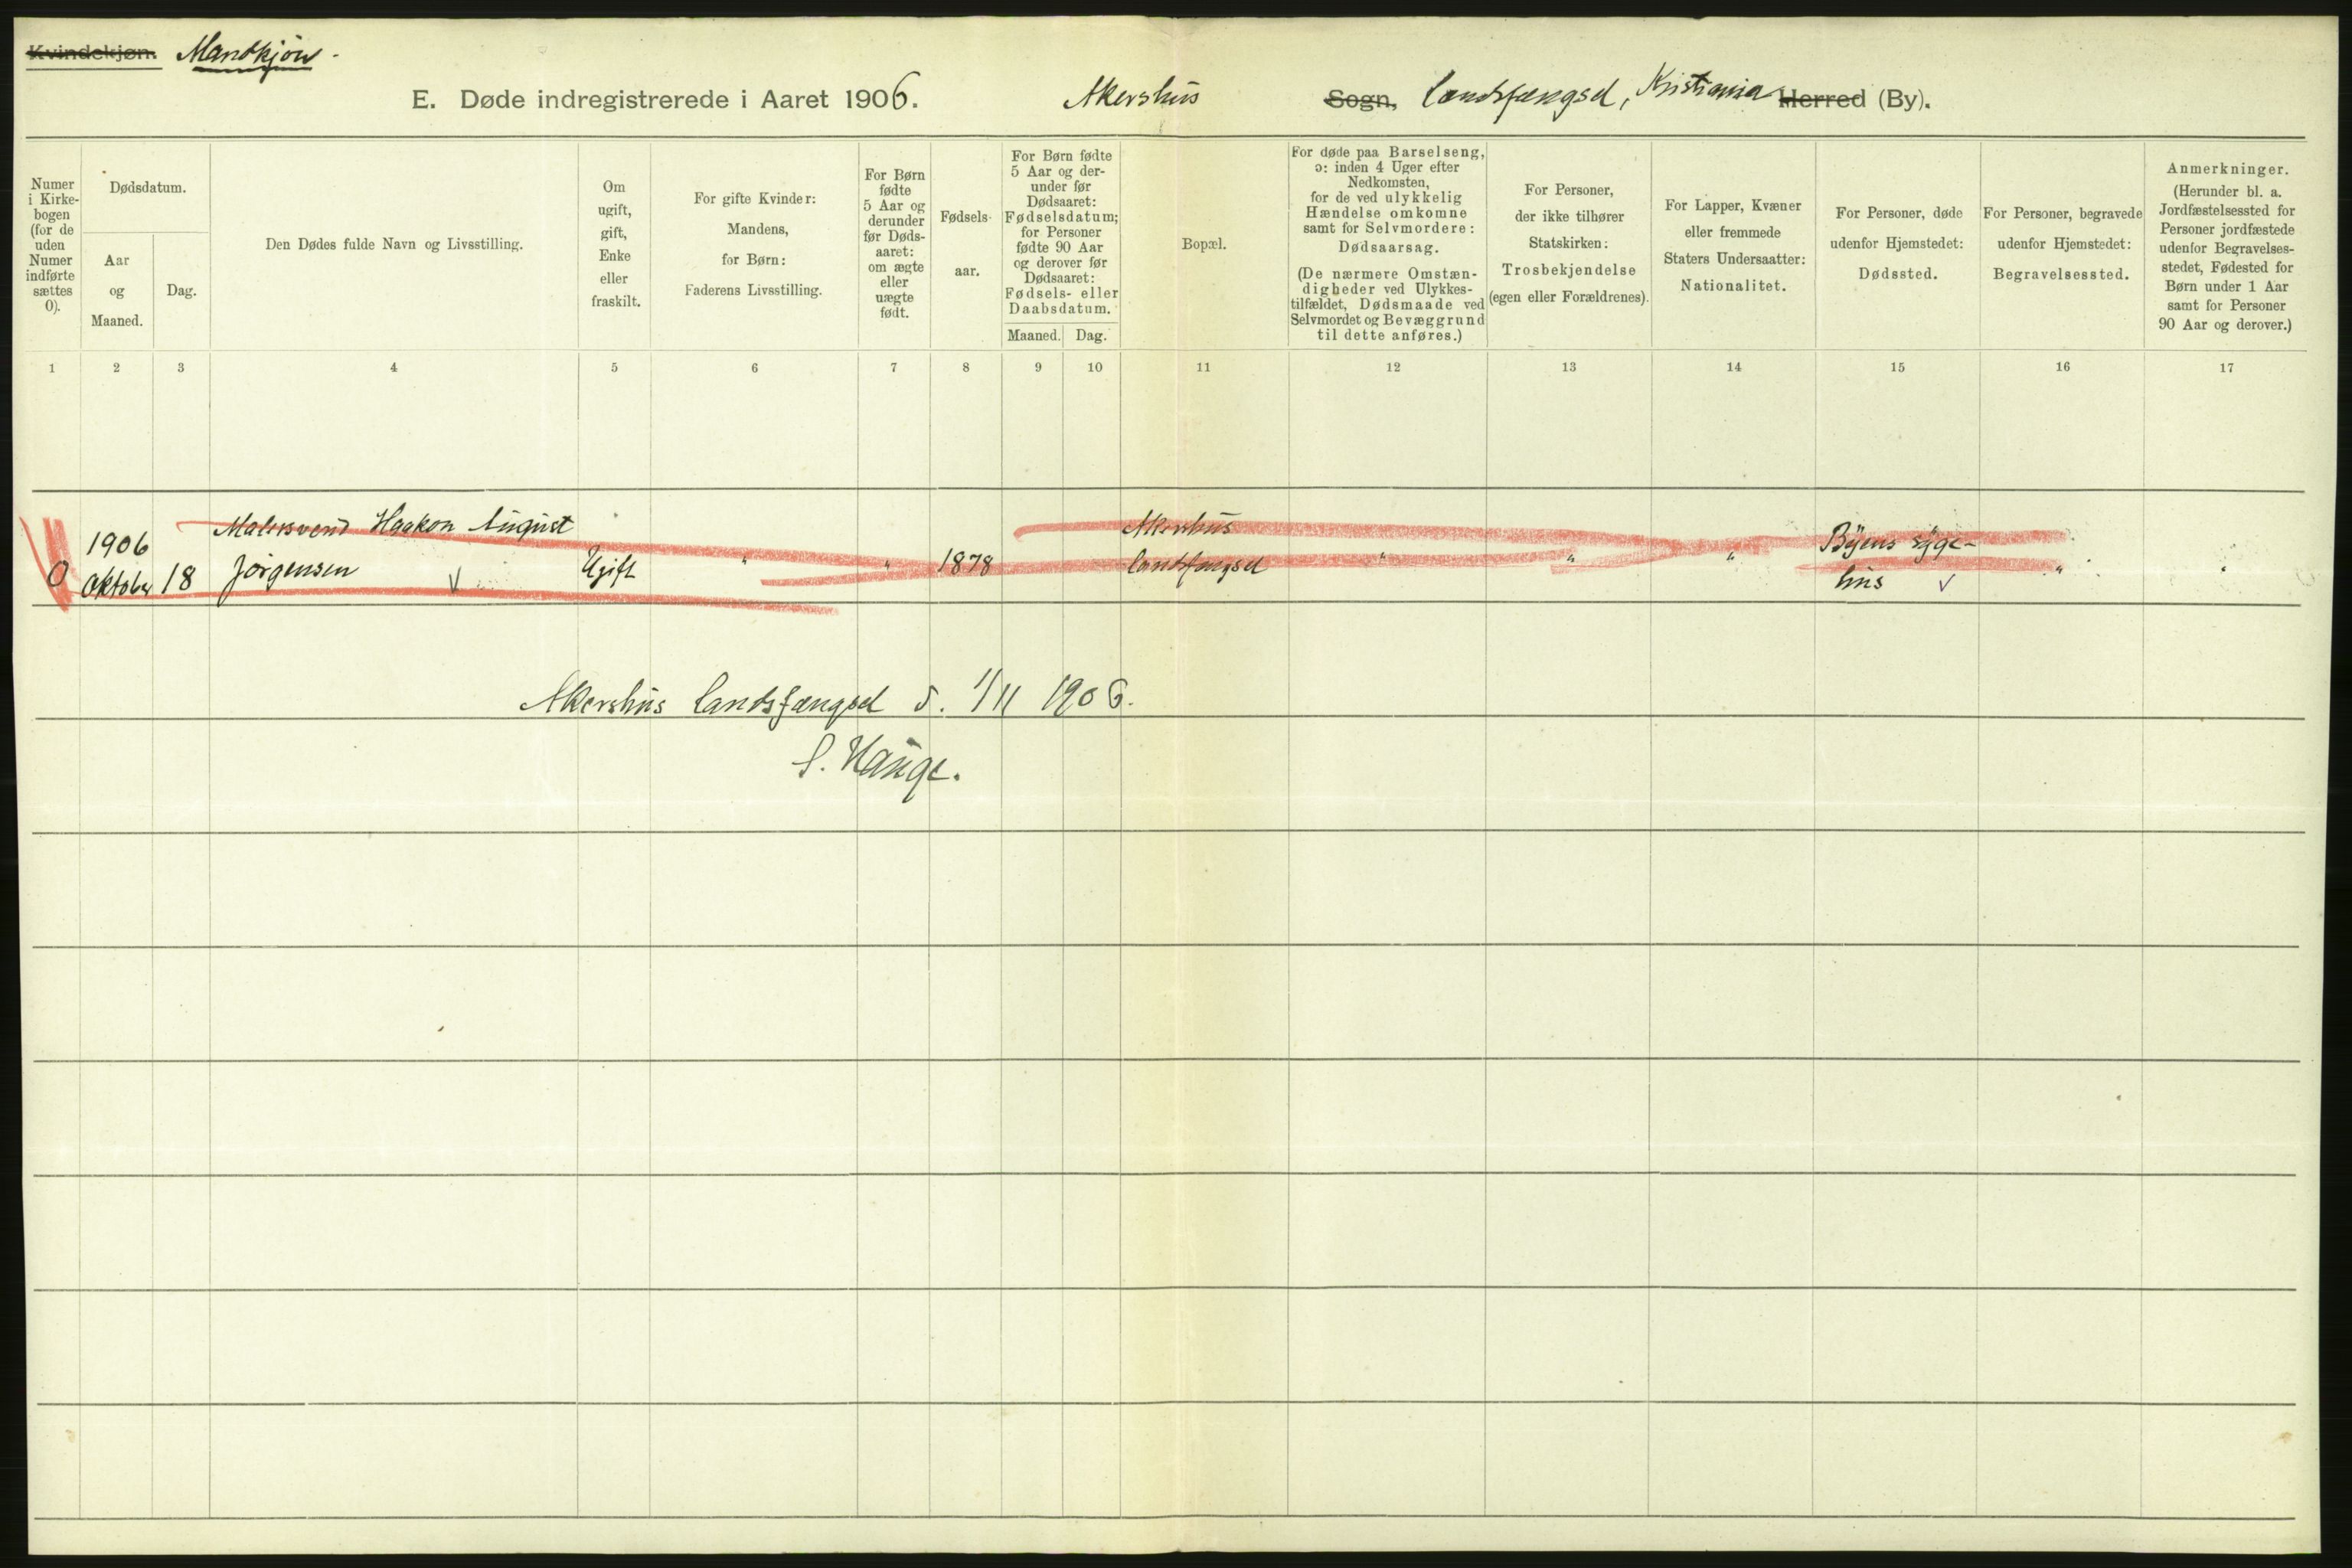 Kvindekjøn. Mandkjøn -
E. Døde indregistrerede i Aaret 1906. Akershus Sogn, Landsfængsel, Kristiania Herred (By).
Numer
i Kirke-
bogen
(for de
uden
Numer
indførte
sættes
0).
Dødsdatum.
Aar
og
Maaned.
Dag.
Den Dødes fulde Navn og Livsstilling.
Om
ugift,
gift,
Enke
eller
fraskilt.
For gifte Kvinder:
Mandens,
for Børn:
Faderens Livsstilling.
For Børn
fødte
5 Aar og
derunder
før Døds-
aaret:
om ægte
eller
uægte
født.
Fødsels-
aar.
For Børn fødte
5 Aar og der-
under før
Dødsaaret:
Fødselsdatum;
for Personer
fødte 90 Aar
og derover før
Dødsaaret:
Fødsels- eller
Daabsdatum.
Maaned. Dag.
Bopæl.
For døde paa Barselseng,
ɔ: inden 4 Uger efter
Nedkomsten,
for de ved ulykkelig
Hændelse omkomne
samt for Selvmordere:
Dødsaarsag.
(De nærmere Omstæn-
digheder ved Ulykkes-
tilfældet, Dødsmaade ved
Selvmordet og Bevæggrund
til dette anføres.)
For Personer,
der ikke tilhører
Statskirken:
Trosbekjendelse
(egen eller Forældrenes).
For Lapper, Kvæner
eller fremmede
Staters Undersaatter:
Nationalitet.
For Personer, døde
udenfor Hjemstedet:
Dødssted.
For Personer, begravede
udenfor Hjemstedet:
Begravelsessted.
Anmerkninger.
(Herunder bl. a.
Jordfæstelsessted for
Personer jordfæstede
udenfor Begravelses-
stedet, Fødested for
Børn under 1 Aar
samt for Personer
90 Aar og derover.)
1 2 3 4 5 6 7 8 9 10 11 12 13 14 15 16 17
1906 Malersvend Haakon August Akershus Byens syge-
0 Oktober 18 Jörgensen Ugift " " 1878 Landsfængsel " " " hus " "
Akershus Landsfængsel d. 1/11 1906.
S. Hauge.